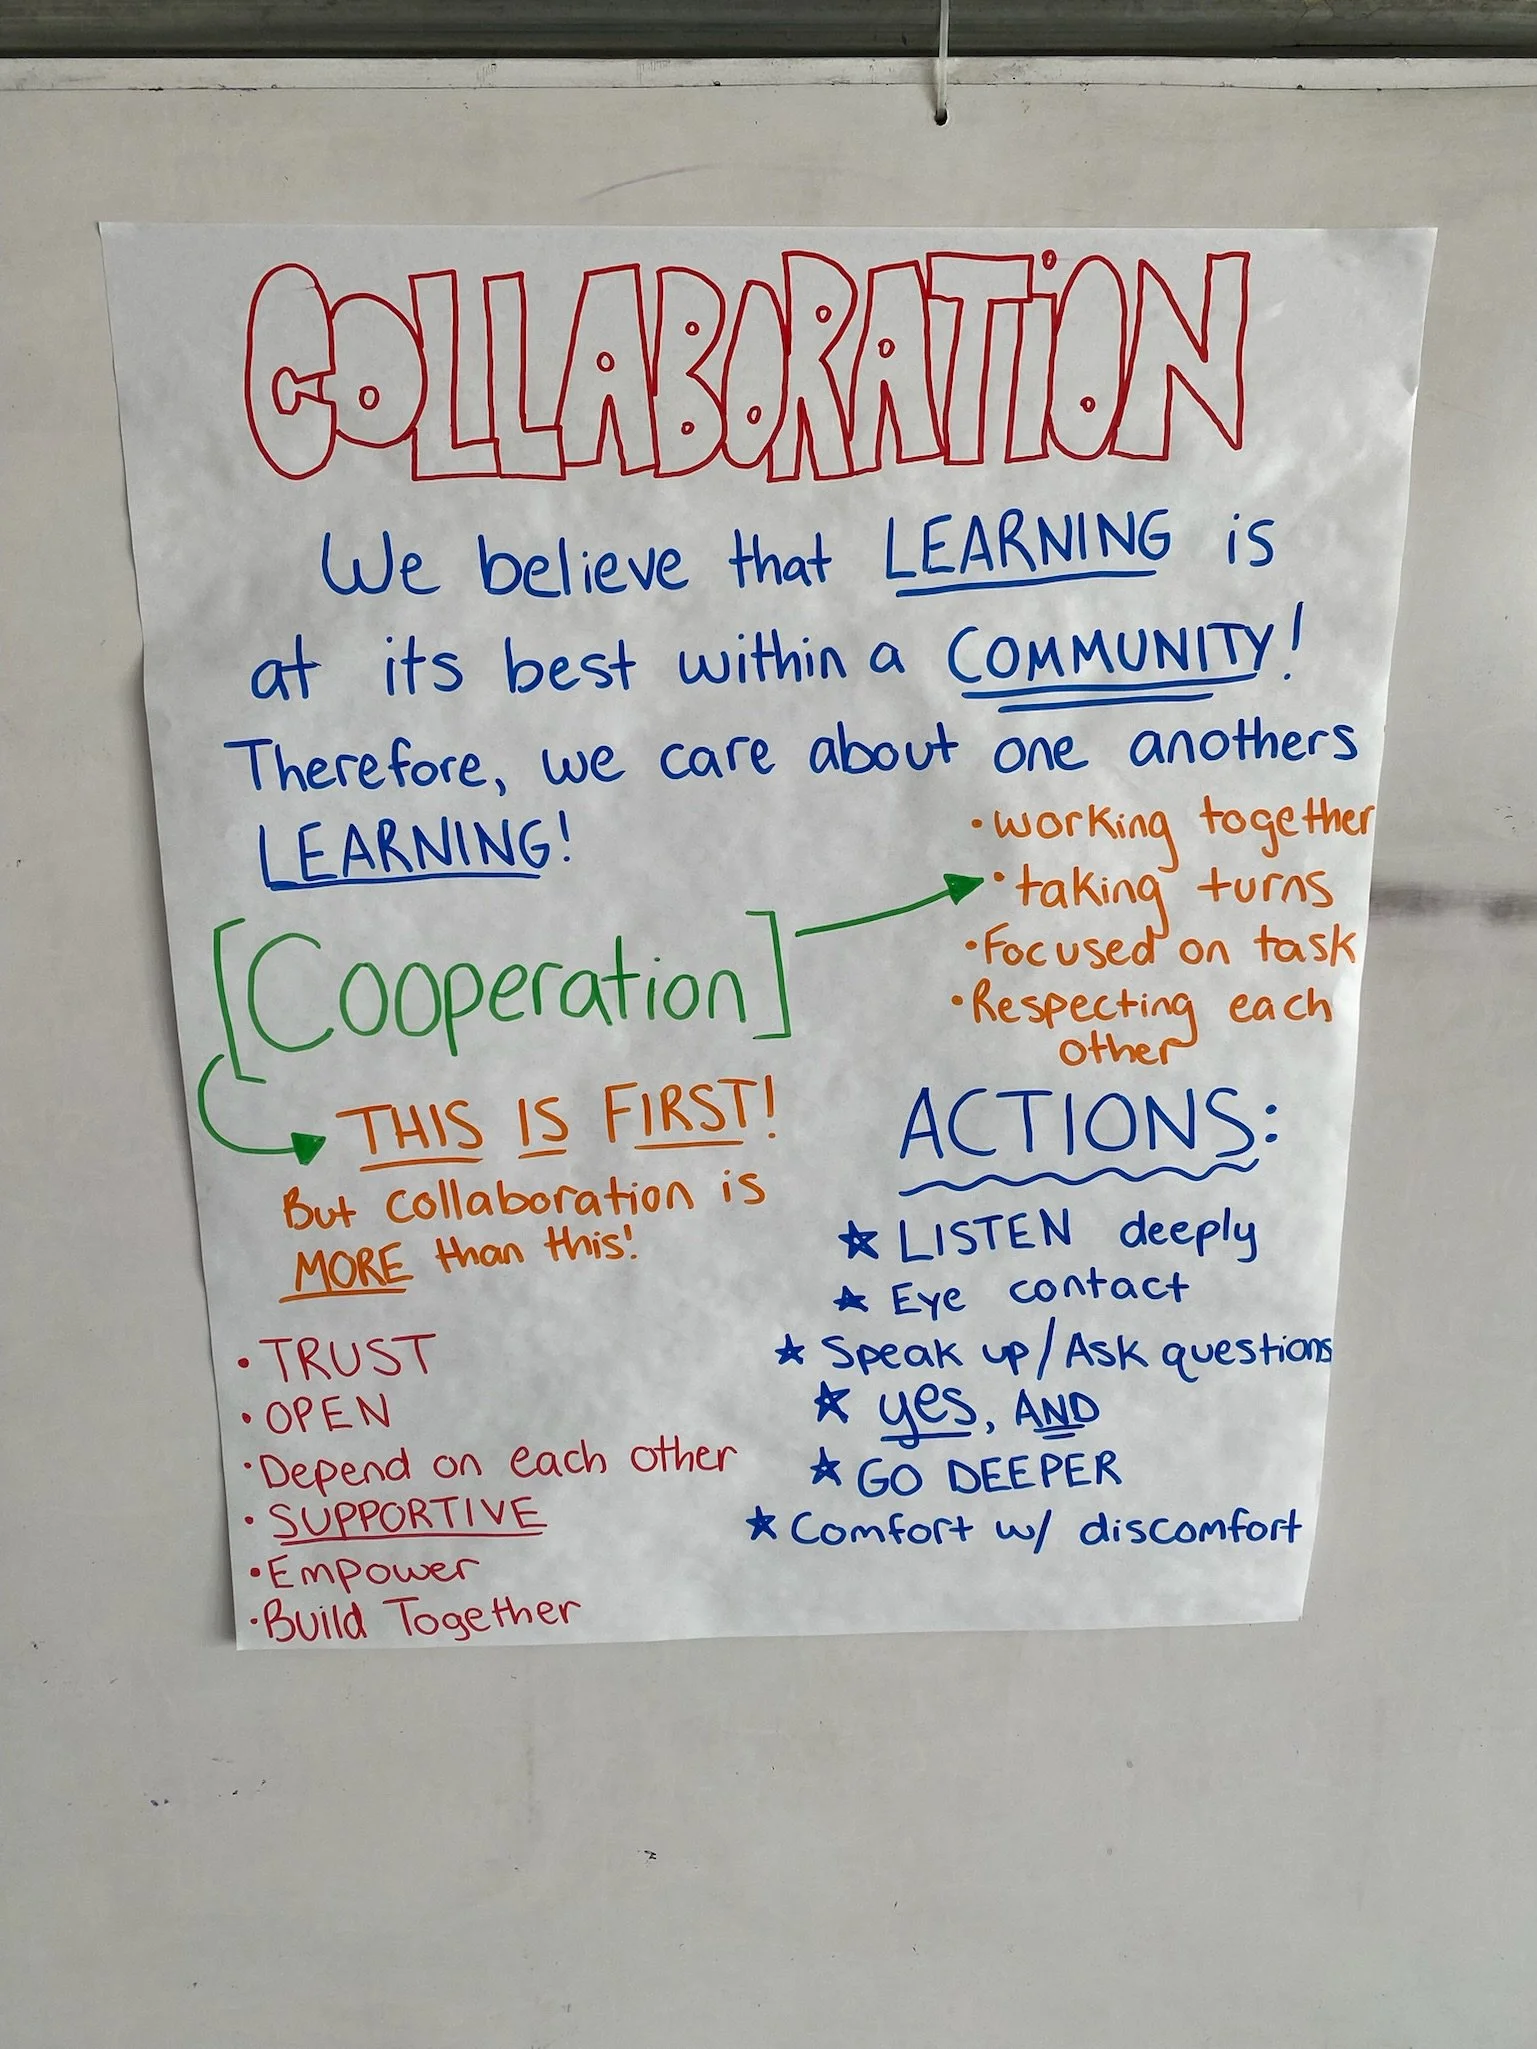 COLLABORATiON
We believe that LEARNING is
at its best within a COMMUNITY!
Therefore, we care about one anothers
LEARNING!
[Cooperation]
• working together
• taking turns
• Focused on task
• Respecting each
other
THIS IS FIRST!
But collaboration is
MORE than this!
• TRUST
• OPEN
• Depend on each other
• SUPPORTIVE
• Empower
• Build Together
ACTIONS:
★ LISTEN deeply
★ Eye contact
★ Speak up/Ask questions
★ yes, AND
★ GO DEEPER
★ Comfort w/ discomfort